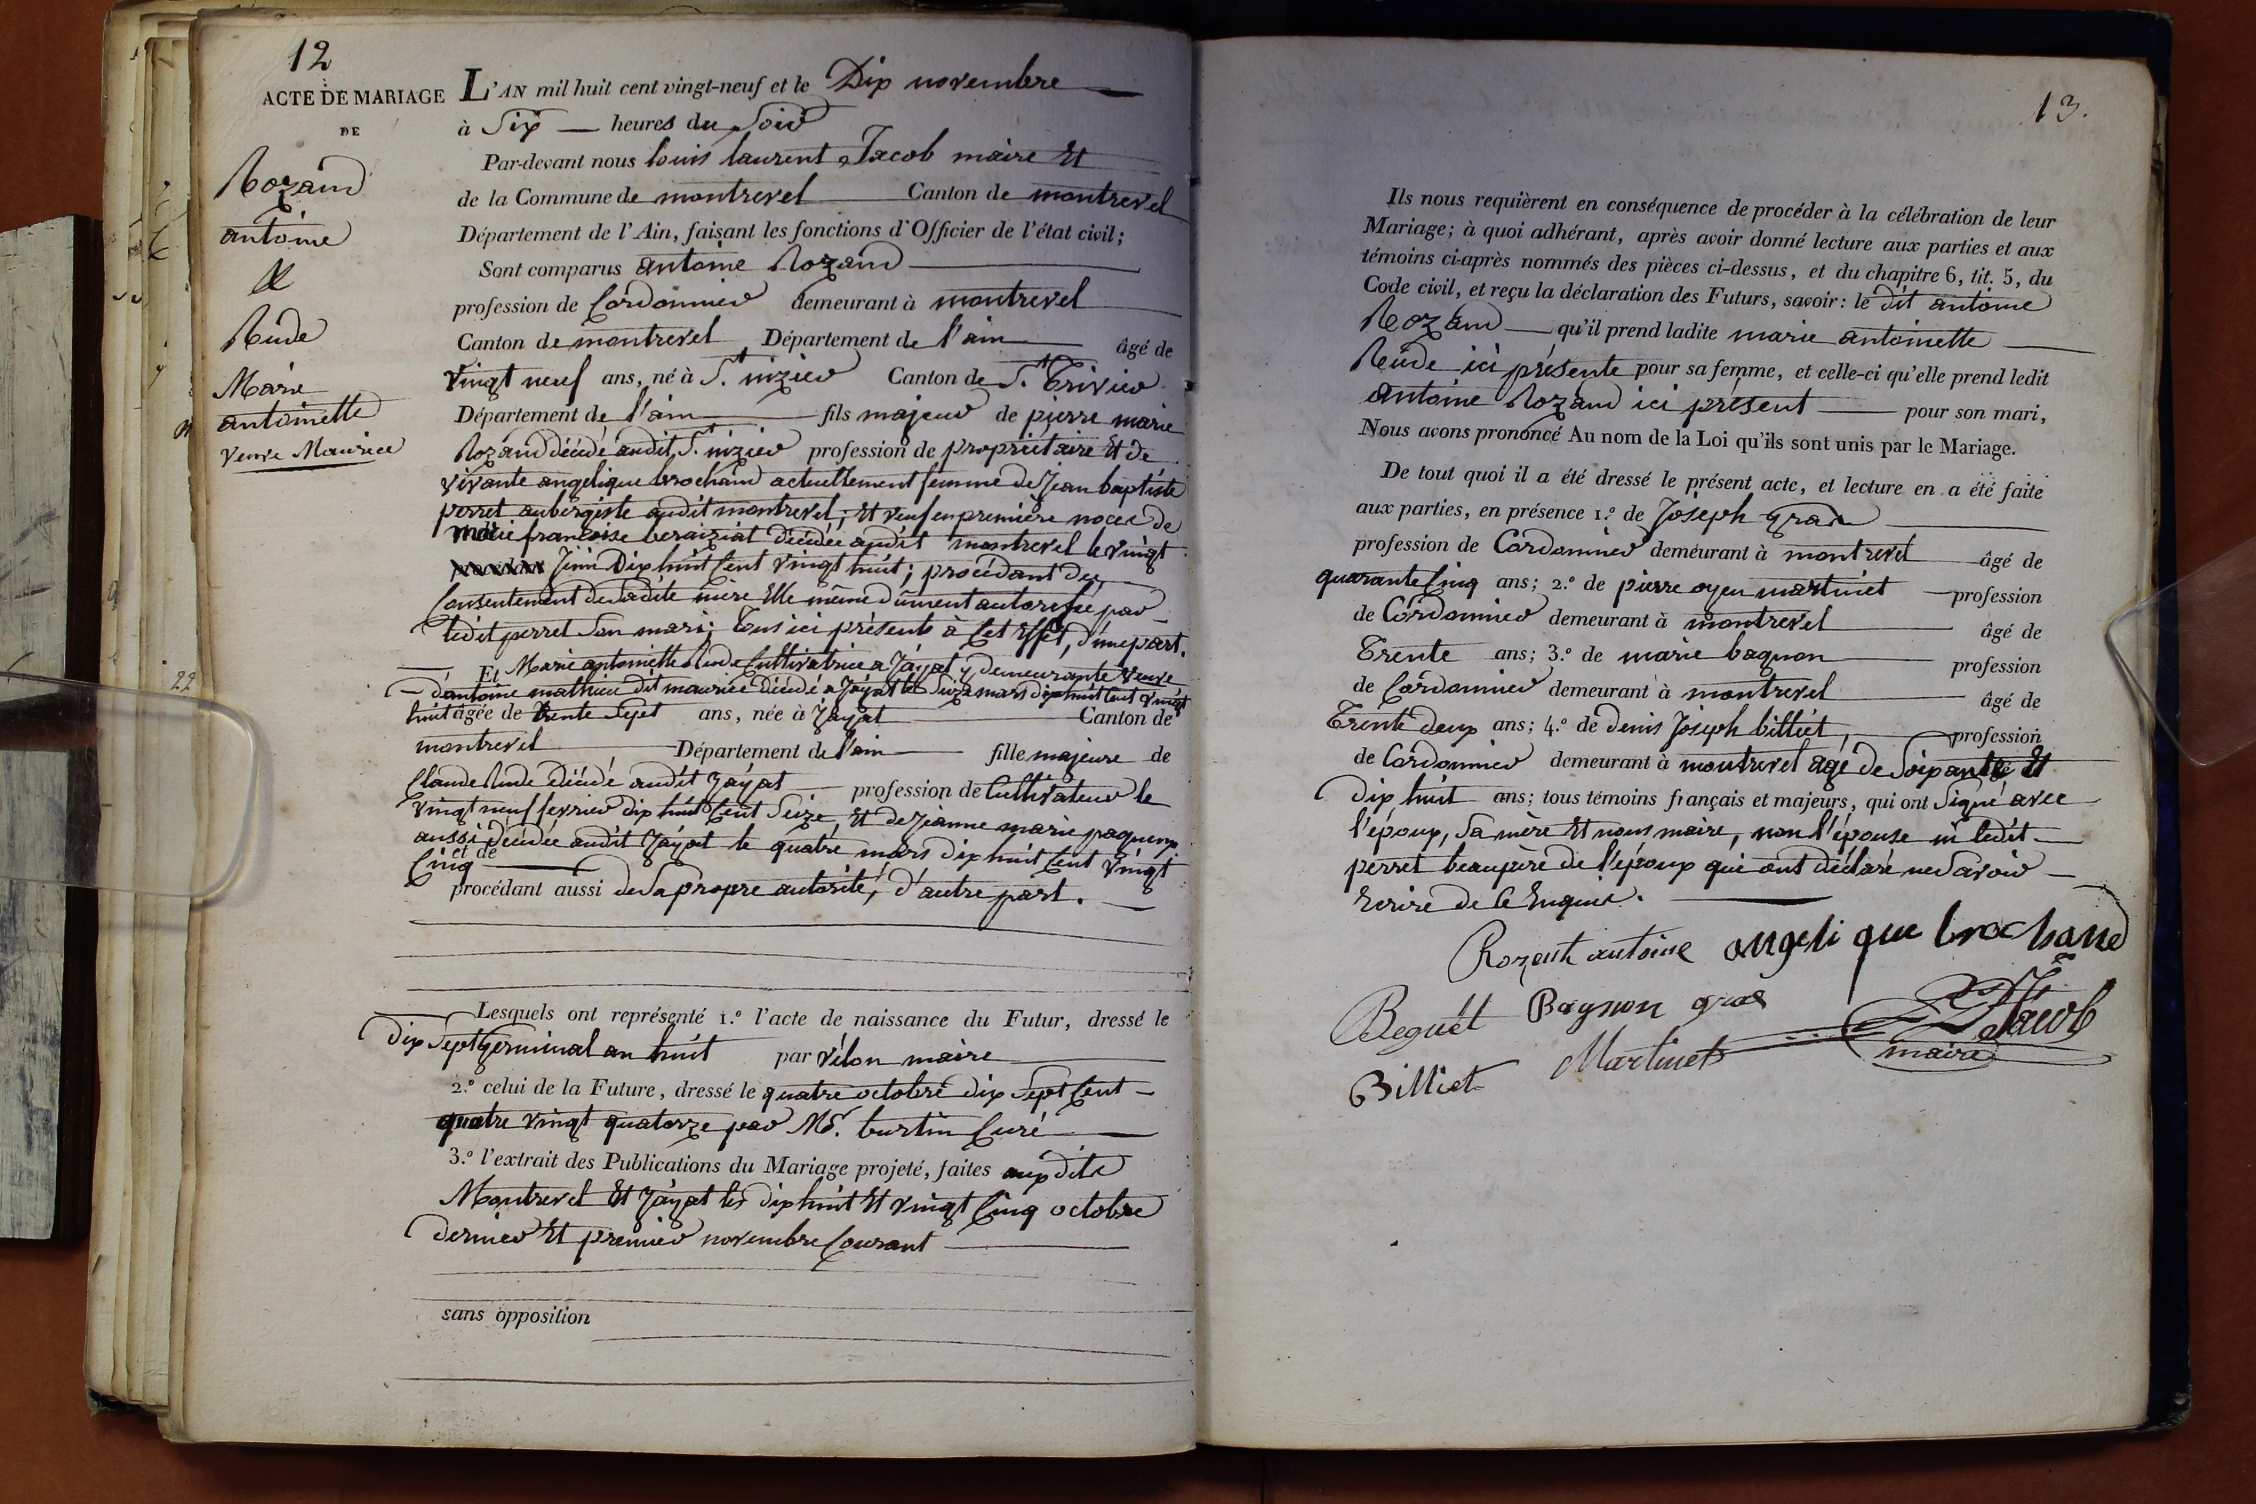 12
ACTE DE MARIAGE
DE
Rozand
antoine
&
Rude
Marie
antoinette
veuve Maurice
L'AN mil huit cent vingt-neuf et le Dix novembre
à Six heures du Soir
Par-devant nous louis laurent Jacob maire Et
de la Commune de montrevel Canton de montrevel
Département de l'Ain, faisant les fonctions d'Officier de l'état civil;
Sont comparus antoine Rozand
profession de Cordonnier demeurant à montrevel
Canton de montrevel Département de l'ain âgé de
vingt neuf ans, né à St. nizier Canton de St. Trivier
Département de l'ain fils majeur de pierre marie
Rozand décédé audit St. nizier profession de propriétaire Et de
vivante angelique brochand actuellement femme de Jean baptiste
perret aubergiste audit montrevel; Et veuf en premiere noces de
Marie francoise beraiziat décédée audit montrevel le vingt
Juin Dix huit Cent vingt huit; procédant du
Consentement de sadite mère Elle même dûment autorisée par
ledit perret Son mari; Tous ici présents à Cet Effet, d'une part.
Et Marie antoinette Rude Cultivatrice a Jayat y demeurante veuve
d'antoine mathieu dit maurice décédé a Jayat le Seize mars dix huit Cent vingt
huit âgée de Trente Sept ans, née à Jayat Canton de
montrevel Département de l'ain fille majeure de
Claude Rude décédé audit Jayat profession de Cultivateur le
vingt neuf fevrier dix huit Cent Seize Et de Jeanne marie paquenx
aussi décédée audit Jayat le quatre mars dix huit Cent vingt
Cinq et de
procédant aussi de Sa propre autorité, d'autre part.
Lesquels ont représenté 1.º l'acte de naissance du Futur, dressé le
dix Sept Germinal an huit par vélon maire
2.º celui de la Future, dressé le quatre octobre dix Sept Cent
quatre vingt quatorze par Mr. burtin Curé
3.º l'extrait des Publications du Mariage projeté, faites aux dits
Montrevel Et Jayat les dix huit Et vingt Cinq octobre
dernier Et premier novembre Courant
sans opposition
13.
Ils nous requièrent en conséquence de procéder à la célébration de leur
Mariage; à quoi adhérant, après avoir donné lecture aux parties et aux
témoins ci-après nommés des pièces ci-dessus, et du chapitre 6, tit. 5, du
Code civil, et reçu la déclaration des Futurs, savoir: le dit antoine
Rozand qu'il prend ladite marie antoinette
Rude ici présente pour sa femme, et celle-ci qu'elle prend ledit
antoine Rozand ici présent pour son mari,
Nous avons prononcé Au nom de la Loi qu'ils sont unis par le Mariage.
De tout quoi il a été dressé le présent acte, et lecture en a été faite
aux parties, en présence 1.º de Joseph gras
profession de Cordonnier demeurant à montrevel âgé de
quarante Cinq ans; 2.º de pierre oyen martinet profession
de Cordonnier demeurant à montrevel âgé de
Trente ans; 3.º de marie bagnon profession
de Cordonnier demeurant à montrevel âgé de
Trente deux ans; 4.º de denis Joseph billiet, profession
de Cordonnier demeurant à montrevel agé de Soixante Et
dix huit ans; tous témoins français et majeurs, qui ont Signé avec
l'époux, Sa mère Et nous maire, non l'épouse ni ledit
perret beaupère de l'époux qui ont déclaré ne Savoir
Ecrire de Ce Enquis.
Rozent antoine angeli que brochand
Beguet Bagnon gras Jacob
Billiet Martinet maire